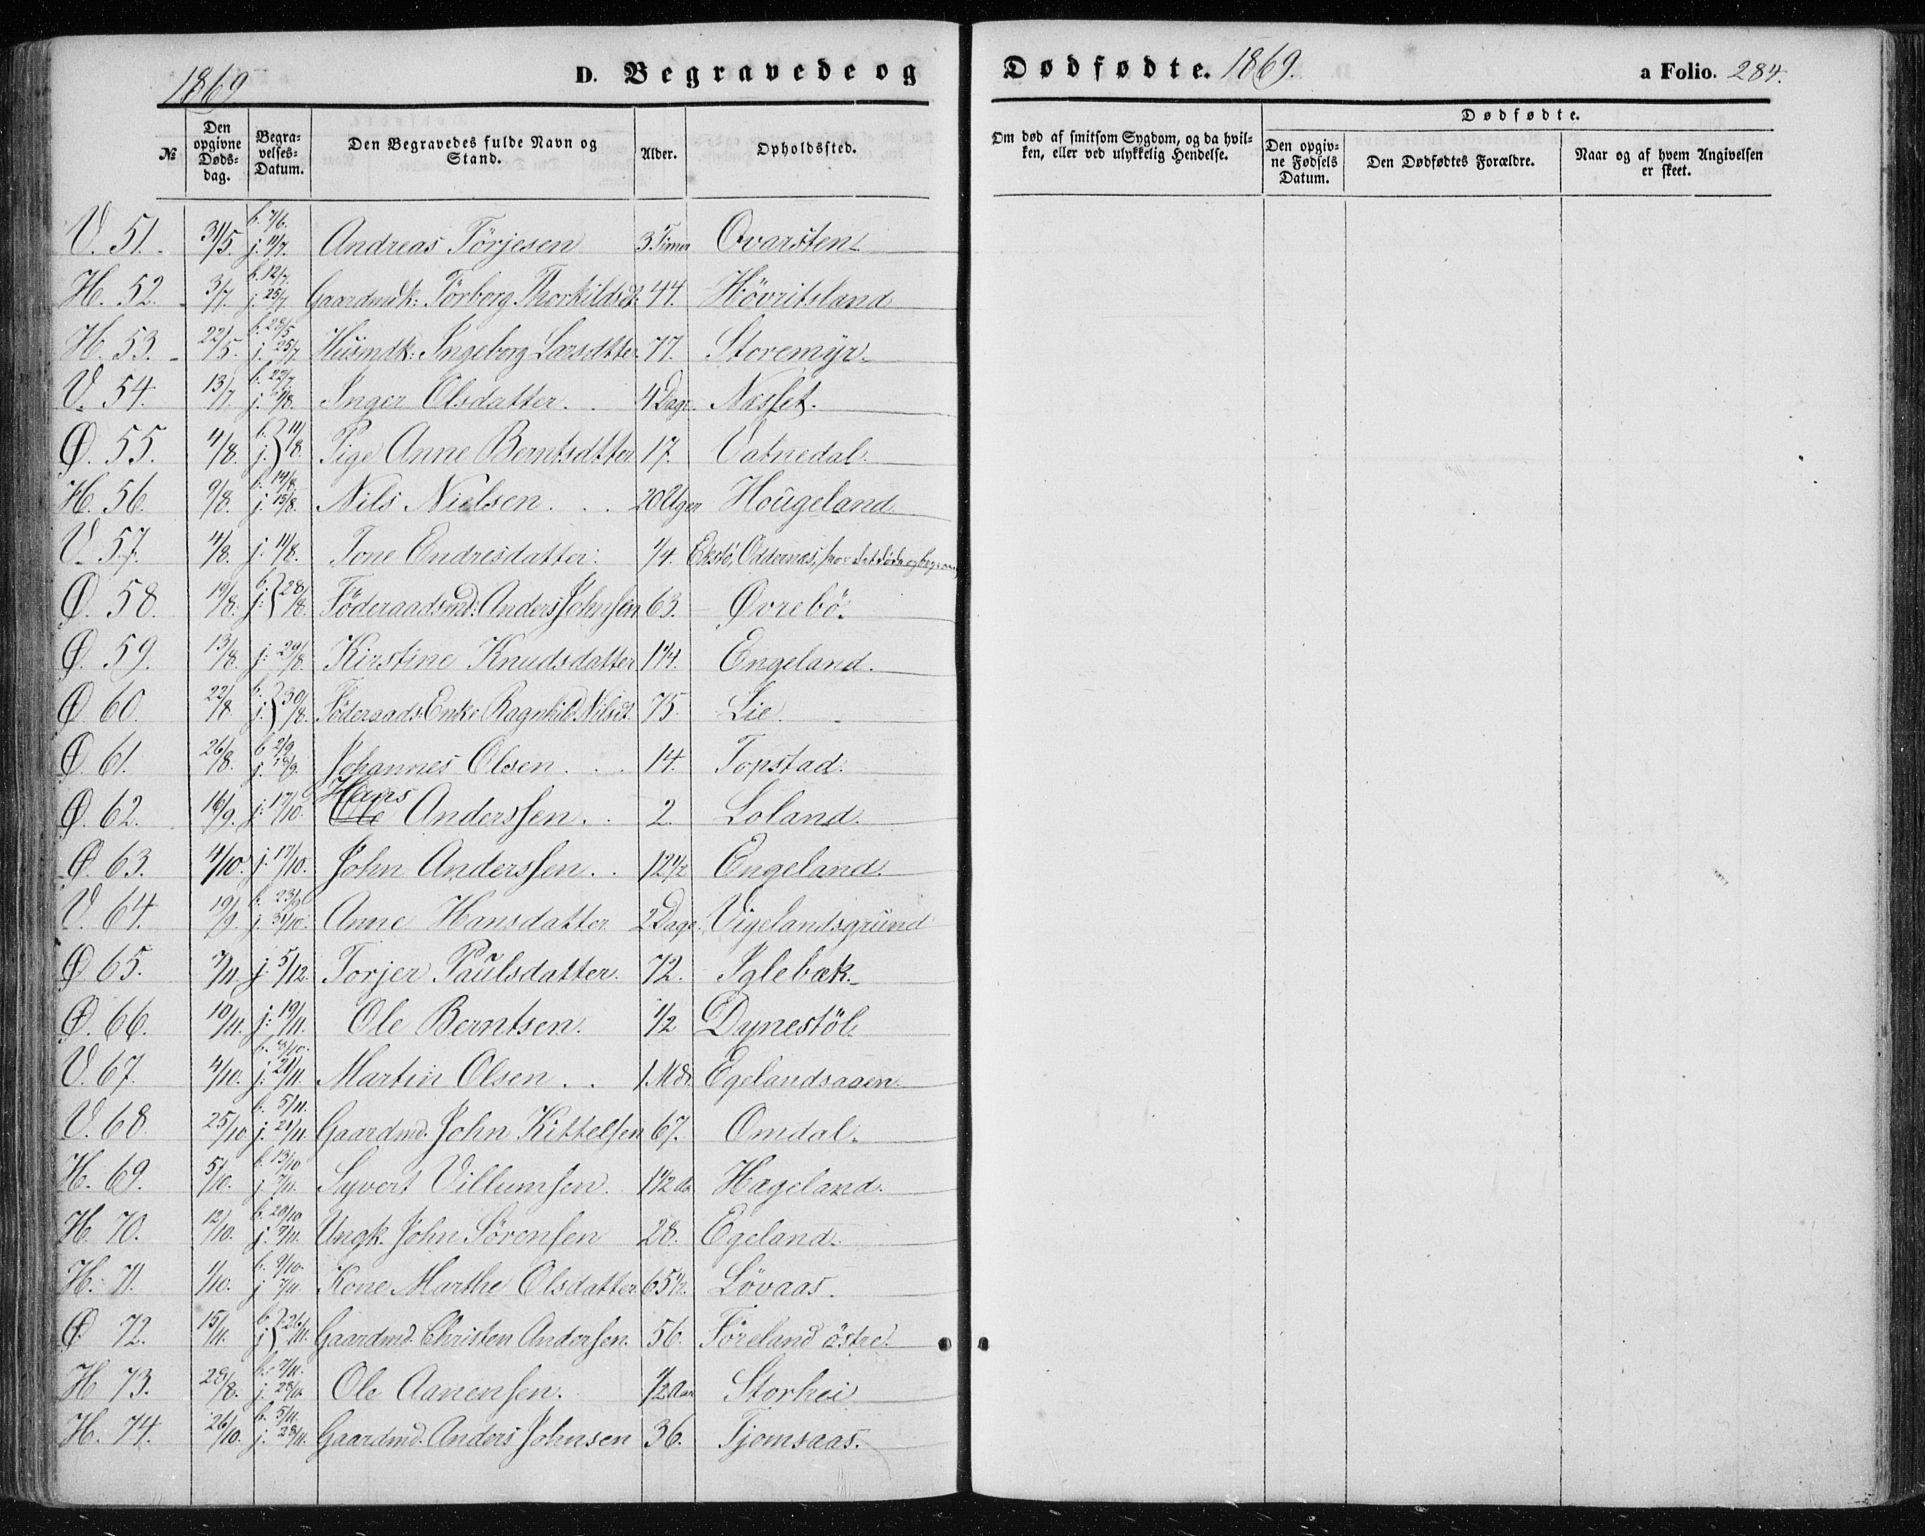 1869 D. Begravede og Dødfødte. 1869. a Folio. 284.
№ Den opgivne Døds-dag. Begra-velses-Datum. Den Begravedes fulde Navn og Stand. Alder. Opholdssted. Om død af smitsom Sygdom, og da hvil-ken, eller ved ulykkelig Hendelse. Dødfødte. Den opgiv-ne Fødsels Datum. Den Dødfødtes Forældre. Naar og af hvem Angivelsen er skeet.
V. 51. 31/5. b. 7/6. j. 11/7. Andreas Törjesen 3 Timer Ovarsten
H. 52. 3/7. b. 12/7. j. 25/7. Gaardmdk: Törborg Thorkildsdt. 44. Hövritsland
H. 53. 22/5. b. 28/5. j. 25/7. Husmdk: Ingeborg Larsdtter. 77. Storemÿr
V. 54. 13/7. b. 22/7. j. /8. Inger Olsdatter. 4 Dage. Næset.
Ø. 55. 4/8. b. j. 11/8. Pige Anne Berntsdtter 17. Vatnedal.
H. 56. 9/8. b. 14/8. j. 15/8. Nils Nielsen. 20 Uger Hoŭgeland
V. 57. 4/8. j. 11/8. Tone Endresdatter. 1/4. Ekstö, Oddernæs, hvor det döde og begravet
Ø. 58. 19/8. b. j. 28/8. Föderaadsmd: Anders Johnsen 63. Øvrebö.
Ø. 59. 13/8. j. 29/8. Kirstine Knudsdatter 1 1/4. Engeland.
Ø. 60. 22/8. b. j. 30/8. Föderaads Enke Ragnhild Nilsdt. 75. Lie.
Ø. 61. 26/8. b. 2/9. j. 18/9. Johannes Olsen. 14. Topstad.
Ø. 62. 16/9. j. 17/10. Hans Ole Anderssen. 2. Loland.
Ø. 63. 4/10. j. 17/10. John Anderssen. 12 1/2 Engeland.
V. 64. 19/9. b. 23/9. j. 31/10. Anne Hansdatter 2 Dage. Vigelandsgrund
Ø 65. 7/11. j. 5/12. Torjer Paulsdatter. 72. Iglebæk.
Ø. 66. 10/11. j. 19/11. Ole Berntsen. 1/2 Dynestöl
V. 67. 4/10. b. 8/10. j. 21/11. Martin Olsen. 1 Md. Egelandsaaen.
V. 68. 25/10. b. 5/11. j. 21/11. Gaardmd. John Kittelsen 67. Omdal.
H. 69. 5/10. b. 13/10 j. 7/11. Syvert Villumsen. 1 1/2 Aar Hægeland.
H. 70. 12/10. b. 20/10 j. 7/11. Ungk. John Sörensen 28. Egeland.
H. 71. 1/10. b. 9/10. j. 7/11. Kone Marthe Olsdatter 65 1/2. Lövaas.
Ø. 72. 15/11. b. j. 26/11. Gaardmd. Christen Andersen. 56. Föreland östre.
H 73. 28/8. b. 7/11. j. 28/11. Ole Aanensen. 1/2 Aar Storhei
H. 74. 26/10. b. 5/11. j. 28/11. Gaardmd. Anders Johnsen 36. Tjomsaas.